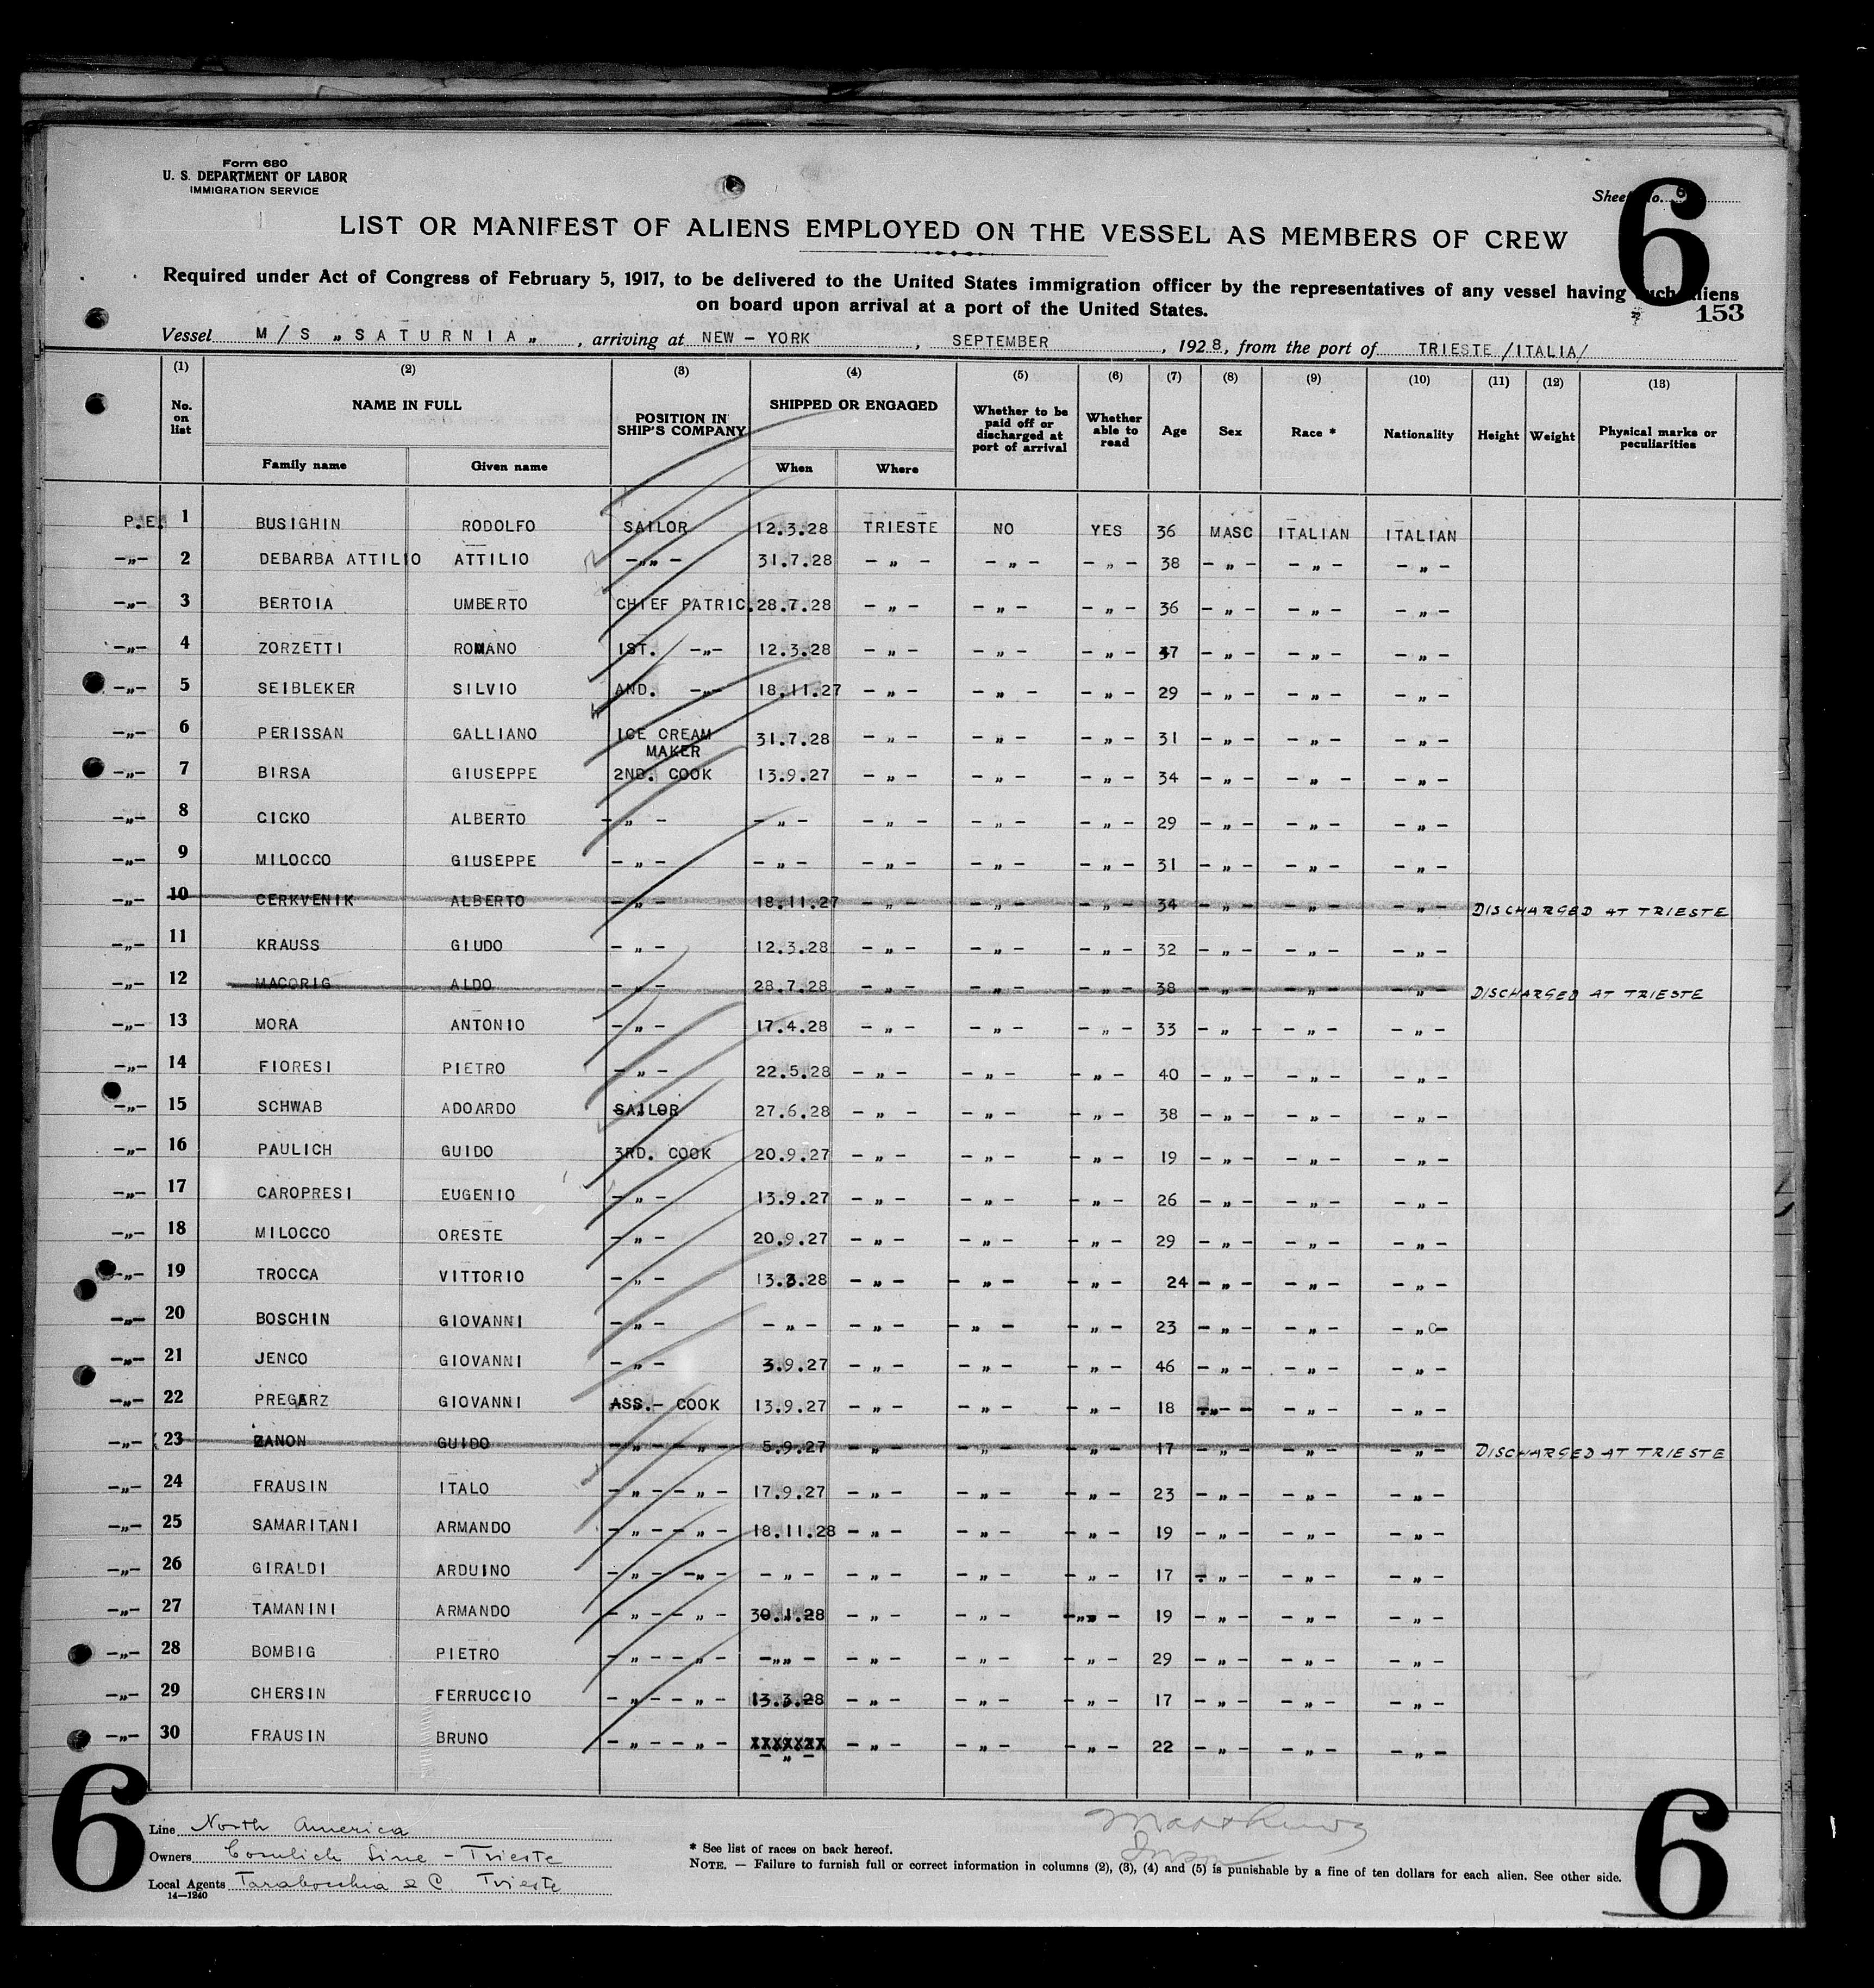 Form 680
U. S. DEPARTMENT OF LABOR
IMMIGRATION SERVICE
Sheet No. 6
6
LIST OR MANIFEST OF ALIENS EMPLOYED ON THE VESSEL AS MEMBERS OF CREW
Required under Act of Congress of February 5, 1917, to be delivered to the United States immigration officer by the representatives of any vessel having such aliens
on board upon arrival at a port of the United States.
153
Vessel M/S „SATURNIA„ , arriving at NEW-YORK , SEPTEMBER , 1928, from the port of TRIESTE /ITALIA/
(1) (2) (3) (4) (5) (6) (7) (8) (9) (10) (11) (12) (13)
No. on list NAME IN FULL Family name Given name POSITION IN SHIP'S COMPANY SHIPPED OR ENGAGED When Where Whether to be paid off or discharged at port of arrival Whether able to read Age Sex Race * Nationality Height Weight Physical marks or peculiarities
P.E. 1 BUSIGHIN RODOLFO SAILOR 12.3.28 TRIESTE NO YES 36 MASC ITALIAN ITALIAN
-„- 2 DEBARBA ATTILIO ATTILIO -„„- 31.7.28 -„- -„- -„- 38 -„- -„- -„-
-„- 3 BERTOIA UMBERTO CHIEF PATRIC. 28.7.28 -„- -„- -„- 36 -„- -„- -„-
-„- 4 ZORZETTI ROMANO 1ST. -„- 12.3.28 -„- -„- -„- 37 -„- -„- -„-
-„- 5 SEIBLEKER SILVIO AND. -„- 18.11.27 -„- -„- -„- 29 -„- -„- -„-
-„- 6 PERISSAN GALLIANO ICE CREAM MAKER 31.7.28 -„- -„- -„- 31 -„- -„- -„-
-„- 7 BIRSA GIUSEPPE 2ND. COOK 13.9.27 -„- -„- -„- 34 -„- -„- -„-
-„- 8 CICKO ALBERTO -„- -„- -„- -„- -„- 29 -„- -„- -„-
-„- 9 MILOCCO GIUSEPPE -„- -„- -„- -„- -„- 31 -„- -„- -„-
-„- 10 CERKVENIK ALBERTO -„- 18.11.27 -„- -„- -„- 34 -„- -„- -„- DISCHARGED AT TRIESTE
-„- 11 KRAUSS GIUDO -„- 12.3.28 -„- -„- -„- 32 -„- -„- -„-
-„- 12 MACORIG ALDO -„- 28.7.28 -„- -„- -„- 38 -„- -„- -„- DISCHARGED AT TRIESTE
-„- 13 MORA ANTONIO -„- 17.4.28 -„- -„- -„- 33 -„- -„- -„-
-„- 14 FIORESI PIETRO -„- 22.5.28 -„- -„- -„- 40 -„- -„- -„-
-„- 15 SCHWAB ADOARDO SAILOR 27.6.28 -„- -„- -„- 38 -„- -„- -„-
-„- 16 PAULICH GUIDO 3RD. COOK 20.9.27 -„- -„- -„- 19 -„- -„- -„-
-„- 17 CAROPRESI EUGENIO -„- 13.9.27 -„- -„- -„- 26 -„- -„- -„-
-„- 18 MILOCCO ORESTE -„- 20.9.27 -„- -„- -„- 29 -„- -„- -„-
-„- 19 TROCCA VITTORIO -„- 13.3.28 -„- -„- -„- 24 -„- -„- -„-
-„- 20 BOSCHIN GIOVANNI -„- -„- -„- -„- -„- 23 -„- -„- -„-
-„- 21 JENCO GIOVANNI -„- 3.9.27 -„- -„- -„- 46 -„- -„- -„-
-„- 22 PREGARZ GIOVANNI ASS.- COOK 13.9.27 -„- -„- -„- 18 -„- -„- -„-
-„- 23 ZANON GUIDO -„--„- 5.9.27 -„- -„- -„- 17 -„- -„- -„- DISCHARGED AT TRIESTE
-„- 24 FRAUSIN ITALO -„--„- 17.9.27 -„- -„- -„- 23 -„- -„- -„-
-„- 25 SAMARITANI ARMANDO -„--„- 18.11.28 -„- -„- -„- 19 -„- -„- -„-
-„- 26 GIRALDI ARDUINO -„--„- -„- -„- -„- -„- 17 -„- -„- -„-
-„- 27 TAMANINI ARMANDO -„--„- 30.1.28 -„- -„- -„„- 19 -„- -„- -„-
-„- 28 BOMBIG PIETRO -„--„- -„„- -„- -„- -„- 29 -„- -„- -„-
-„- 29 CHERSIN FERRUCCIO -„--„- 13.3.28 -„- -„- -„- 17 -„- -„- -„-
-„- 30 FRAUSIN BRUNO -„--„- XXXXXXX -„- -„- -„- -„- 22 -„- -„- -„-
6
6
Line North America
Owners Cosulich Line - Trieste
Local Agents Tarabocchia & C. Trieste
14—1240
Matthews
* See list of races on back hereof.
NOTE. — Failure to furnish full or correct information in columns (2), (3), (4) and (5) is punishable by a fine of ten dollars for each alien. See other side.